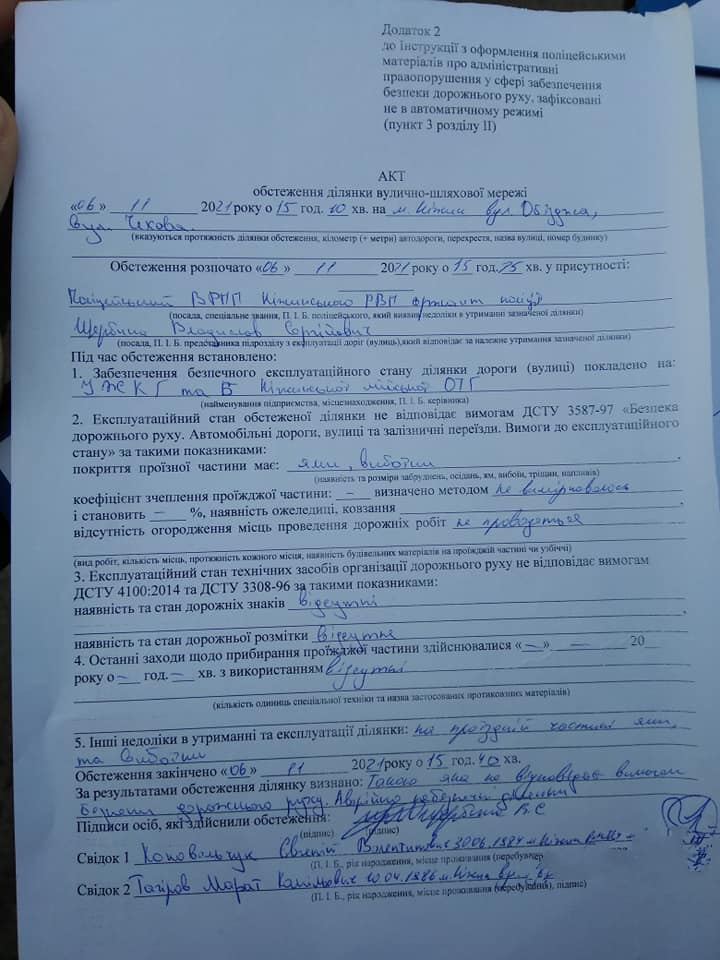 Додаток 2
до Інструкції з оформлення поліцейськими
матеріалів про адміністративні
правопорушення у сфері забезпечення
безпеки дорожнього руху, зафіксовані
не в автоматичному режимі
(пункт 3 розділу ІІ)
АКТ
обстеження ділянки вулично-шляхової мережі
«06» 11 2021 року о 15 год. 10 хв. на м. Ніжин вул. Об'їжджа,
вул. Чехова.
(вказуються протяжність ділянки обстеження, кілометр (+ метри) автодороги, перехрестя, назва вулиці, номер будинку)
Обстеження розпочато «06» 11 2021 року о 15 год. 25 хв. у присутності:
Поліцейський ВРПП Ніжинського РВП сержант поліції
(посада, спеціальне звання, П. І. Б. поліцейського, який виявив недоліки в утриманні зазначеної ділянки)
Щербина Владислав Сергійович
(посада, П. І. Б. представника підрозділу з експлуатації доріг (вулиць), який відповідає за належне утримання зазначеної ділянки)
Під час обстеження встановлено:
1. Забезпечення безпечного експлуатаційного стану ділянки дороги (вулиці) покладено на:
УЖКГ та Б Ніжинської міської ОТГ
(найменування підприємства, місцезнаходження, П. І. Б. керівника)
2. Експлуатаційний стан обстеженої ділянки не відповідає вимогам ДСТУ 3587-97 «Безпека
дорожнього руху. Автомобільні дороги, вулиці та залізничні переїзди. Вимоги до експлуатаційного
стану» за такими показниками:
покриття проїзної частини має: ями, вибоїни
(наявність та розміри забруднень, осідань, ям, вибоїн, тріщин, напливів)
коефіцієнт зчеплення проїжджої частини: – визначено методом не вимірювалось
і становить – %, наявність ожеледиці, ковзання
відсутність огородження місць проведення дорожніх робіт не проводяться
(вид робіт, кількість місць, протяжність кожного місця, наявність будівельних матеріалів на проїжджій частині чи узбіччі)
3. Експлуатаційний стан технічних засобів організації дорожнього руху не відповідає вимогам
ДСТУ 4100:2014 та ДСТУ 3308-96 за такими показниками:
наявність та стан дорожніх знаків відсутні
наявність та стан дорожньої розмітки відсутня
4. Останні заходи щодо прибирання проїжджої частини здійснювалися «–» – 20
року о – год. – хв. з використанням відсутні
(кількість одиниць спеціальної техніки та назва застосованих протиковзних матеріалів)
5. Інші недоліки в утриманні та експлуатації ділянки: на проїздній частині ями,
та вибоїни
Обстеження закінчено «06» 11 2021 року о 15 год. 40 хв.
За результатами обстеження ділянку визнано: Такою яка не відповідає вимогам
безпеки дорожнього руху. Аварійно небезпечної
Підписи осіб, які здійснили обстеження: Щербина В.С
(підпис) (підпис)
Свідок 1 Євгеній Валентинович 30.06.1984 м. Ніжин
(П. І. Б., рік народження, місце проживання (перебування
Свідок 2 Тагіров Марат 10.04.1986 м. Ніжин
(П. І. Б., рік народження, місце проживання (перебування), підпис)